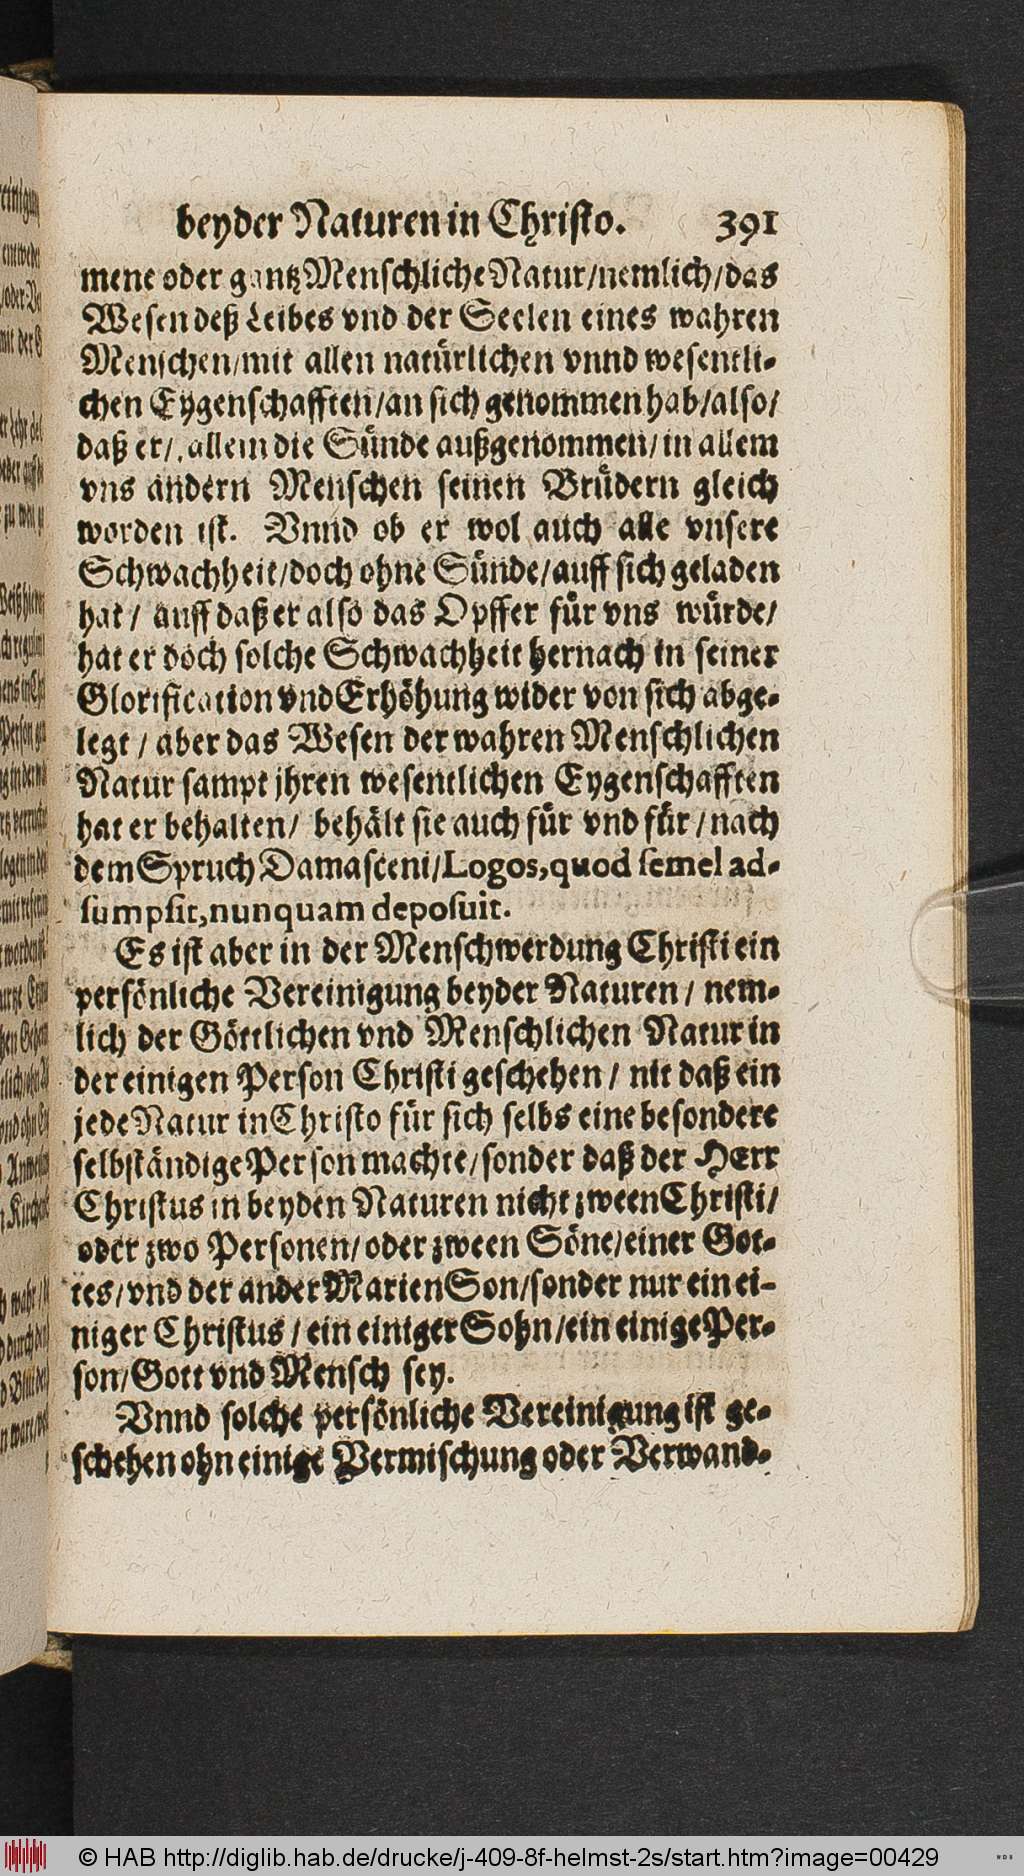 beyder Naturen in Christo. 391
mene oder gantz Menschliche Natur/nemlich/das
Wesen deß Leibes vnd der Seelen eines wahren
Menschen/mit allen natürlichen vnnd wesentli-
chen Eygenschafften/an sich genommen hab/also/
daß er/ allein die Sünde außgenommen/in allem
vns andern Menschen seinen Brüdern gleich
worden ist. Vnnd ob er wol auch alle vnsere
Schwachheit/doch ohne Sünde/auff sich geladen
hat/ auff daß er also das Opffer für vns würde/
hat er doch solche Schwachheit hernach in seiner
Glorification vnd Erhöhung wider von sich abge-
legt/ aber das Wesen der wahren Menschlichen
Natur sampt jhren wesentlichen Eygenschafften
hat er behalten/ behält sie auch für vnd für/nach
dem Spruch Damasceni/Logos,quod semel ad-
sumpsit,nunquam deposuit.
Es ist aber in der Menschwerdung Christi ein
persönliche Vereinigung beyder Naturen/ nem-
lich der Göttlichen vnd Menschlichen Natur in
der einigen Person Christi geschehen/ nit daß ein
jede Natur in Christo für sich selbs eine besondere
selbständige Person machte/sonder daß der HErr
Christus in beyden Naturen nicht zween Christi/
oder zwo Personen/oder zween Söne/einer Got-
tes/vnd der ander Marien Son/sonder nur ein ei-
niger Christus/ein einiger Sohn/ein einige Per-
son/Gott vnd Mensch sey.
Vnnd solche persönliche Vereinigung ist ge-
schehen ohn einige Vermischung oder Verwand-
© HAB http://diglib.hab.de/drucke/j-409-8f-helmst-2s/start.htm?image=00429